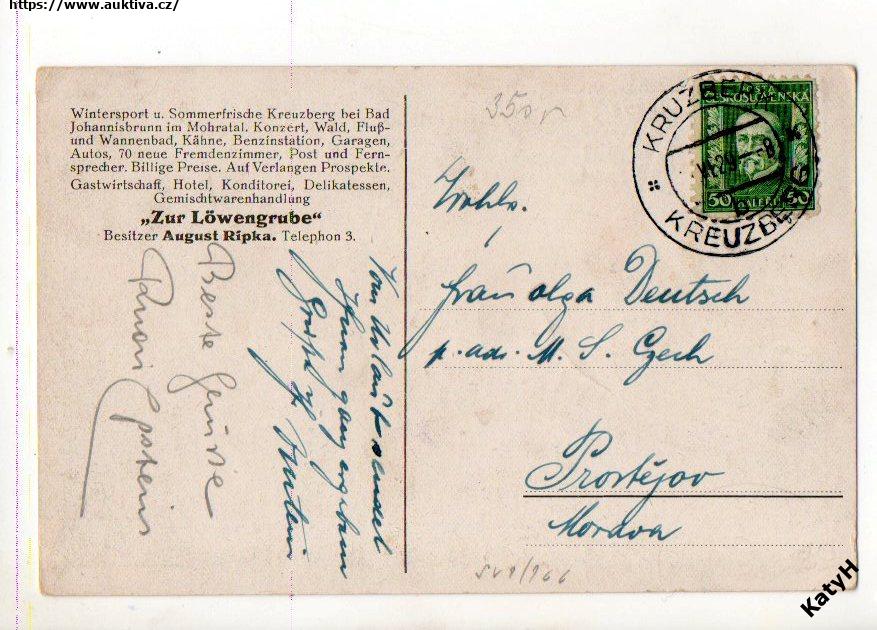 https://www.auktiva.cz/
Wintersport u. Sommerfrische Kreuzberg bei Bad
Johannisbrunn im Mohratal. Konzert, Wald, Fluß-
und Wannenbad, Kähne, Benzinstation, Garagen,
Autos, 70 neue Fremdenzimmer, Post und Fern-
sprecher. Billige Preise. Auf Verlangen Prospekte.
Gastwirtschaft, Hotel, Konditorei, Delikatessen,
Gemischtwarenhandlung
„Zur Löwengrube“
Besitzer August Ripka. Telephon 3.
Vom Urlaub sendet
Ihnen ganz
Beste Grüsse
Epstein
350
KRUZBERG
KREUZBERG
ČESKOSLOVENSKA
50 HALERU 50
Wohlg.
Frau Olga Deutsch
p. adr. M. S. Czech
Prostějov
Morava
KatyH